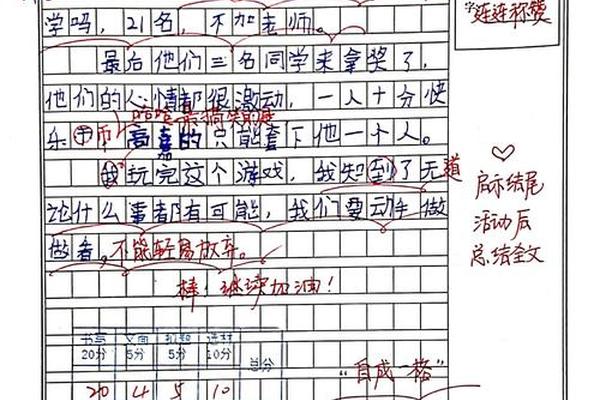 学吗，21名，不加老师。
连连称赞
最后他们三名同学来拿奖了，
他们的人心情都很激动，一人十分快
哈哈 最搞笑的是
乐 币 高喜的只能套下他一个人。
我玩完这个游戏，我知到了无
道
论什么事都有可能，我们要动手做
做看，不能轻易放弃。
棒！继续加油！
启示结尾
活动后
总结全文
书写 文面 扣题 选材 总分
20分 5分 5分 10分
20 4 5 10
"自成一格"